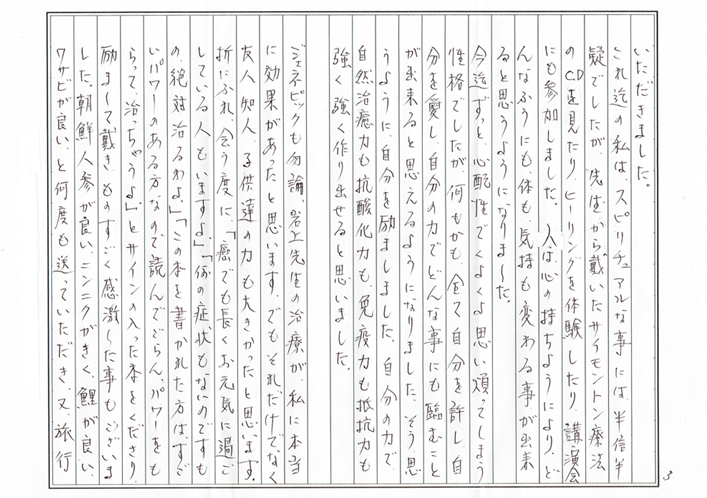 いただきました。
これ迄の私は、スピリチュアルな事には、半信半
疑でしたが、先生から戴いたサイモントン療法
のCDを見たり、ヒーリングを体験したり、講演会
にも参加しました。人は心の持ちようにより、ど
んなふうにも、体も、気持も変わる事が出来
ると思うようになりました。
今迄ずっと、心配性でくよくよ思い煩ってしまう
性格でしたが、何もかも、全て自分を許し、自
分を愛し、自分の力でどんな事にも臨むこと
が出来ると思えるようになりました。そう思
うように、自分を励ましました。自分の力で
自然治癒力も、抗酸化力も、免疫力も抵抗力も
強く強く作り出せると思いました。
ジェネピックも勿論、岩上先生の治療が、私に本当
に効果があったと思います。でもそれだけでなく
友人、知人、子供達の力も大きかったと思います。
折にふれ、会う度に、「癌でも長くお元気に過ご
している人もいますよ」「何の症状もないのですも
の、絶対治るわよ。」「この本を書かれた方は、すご
いパワーのある方なので読んでごらん。パワーをも
らって、治っちゃうよ」とサインの入った本をくださり、
励まして戴き、ものすごく感激した事もございま
した。朝鮮人参が良い、ニンニクがきく、鯉が良い、
ワサビが良い、と何度も送っていただき、又、旅行
3